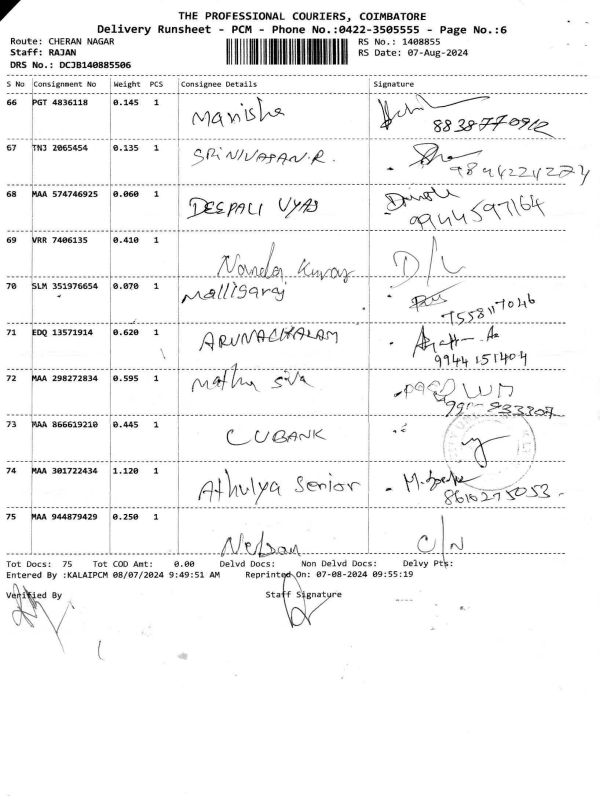 THE PROFESSIONAL COURIERS, COIMBATORE
Delivery Runsheet - PCM - Phone No.:0422-3505555 - Page No.:6
Route: CHERAN NAGAR RS No.: 1408855
Staff: RAJAN RS Date: 07-Aug-2024
DRS No.: DCJB140885506
S No Consignment No Weight PCS Consignee Details Signature
66 PGT 4836118 0.145 1 Manisha
8838770912
67 TNJ 2065454 0.135 1 SRINIVASAN.R.
9894224224
68 MAA 574746925 0.060 1 DEEPALI VYAS
9944597164
69 VRR 7406135 0.410 1 Nanda Kumar D/L
70 SLM 351976654 0.070 1 Malligaraj
7558117046
71 EDQ 13571914 0.620 1 ARUNACHALAM
9944151404
72 MAA 298272834 0.595 1 Mathu Siva
73 MAA 866619210 0.445 1 CUBANK
74 MAA 301722434 1.120 1 Athulya Senior
8610275053
75 MAA 944879429 0.250 1 Nelson C/N
Tot Docs: 75 Tot COD Amt: 0.00 Delvd Docs: Non Delvd Docs: Delvy Pts:
Entered By :KALAIPCM 08/07/2024 9:49:51 AM Reprinted On: 07-08-2024 09:55:19
Verified By Staff Signature